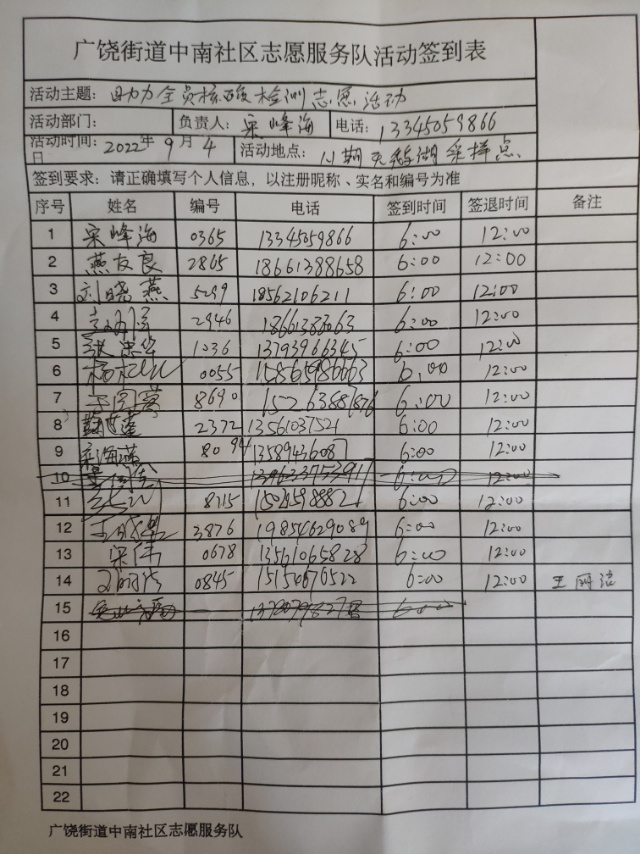 广饶街道中南社区志愿服务队活动签到表
活动主题：助力全员核酸检测志愿活动
活动部门： 负责人：宋峰海 电话：13345059866
活动时间：2022年9月4日 活动地点：天鹅湖采样点
签到要求：请正确填写个人信息，以注册昵称、实名和编号为准
序号 姓名 编号 电话 签到时间 签退时间 备注
1 宋峰海 0365 13345059866 6:00 12:00
2 燕友良 2865 18661388658 6:00 12:00
3 刘晓燕 5299 18562106211 6:00 12:00
4 2946 6:00 12:00
5 1036 13793966345 6:00 12:00
6 0055 6:00 12:00
7 8690 6:00 12:00
8 2372 13561037521 6:00 12:00
9 宋海燕 8094 6:00 12:00
10 6:00 12:00
11 8715 6:00 12:00
12 3876 19854629089 6:00 12:00
13 宋伟 0678 13561065828 6:00 12:00
14 0845 15150676522 6:00 12:00
15 6:00
16
17
18
19
20
21
22
广饶街道中南社区志愿服务队